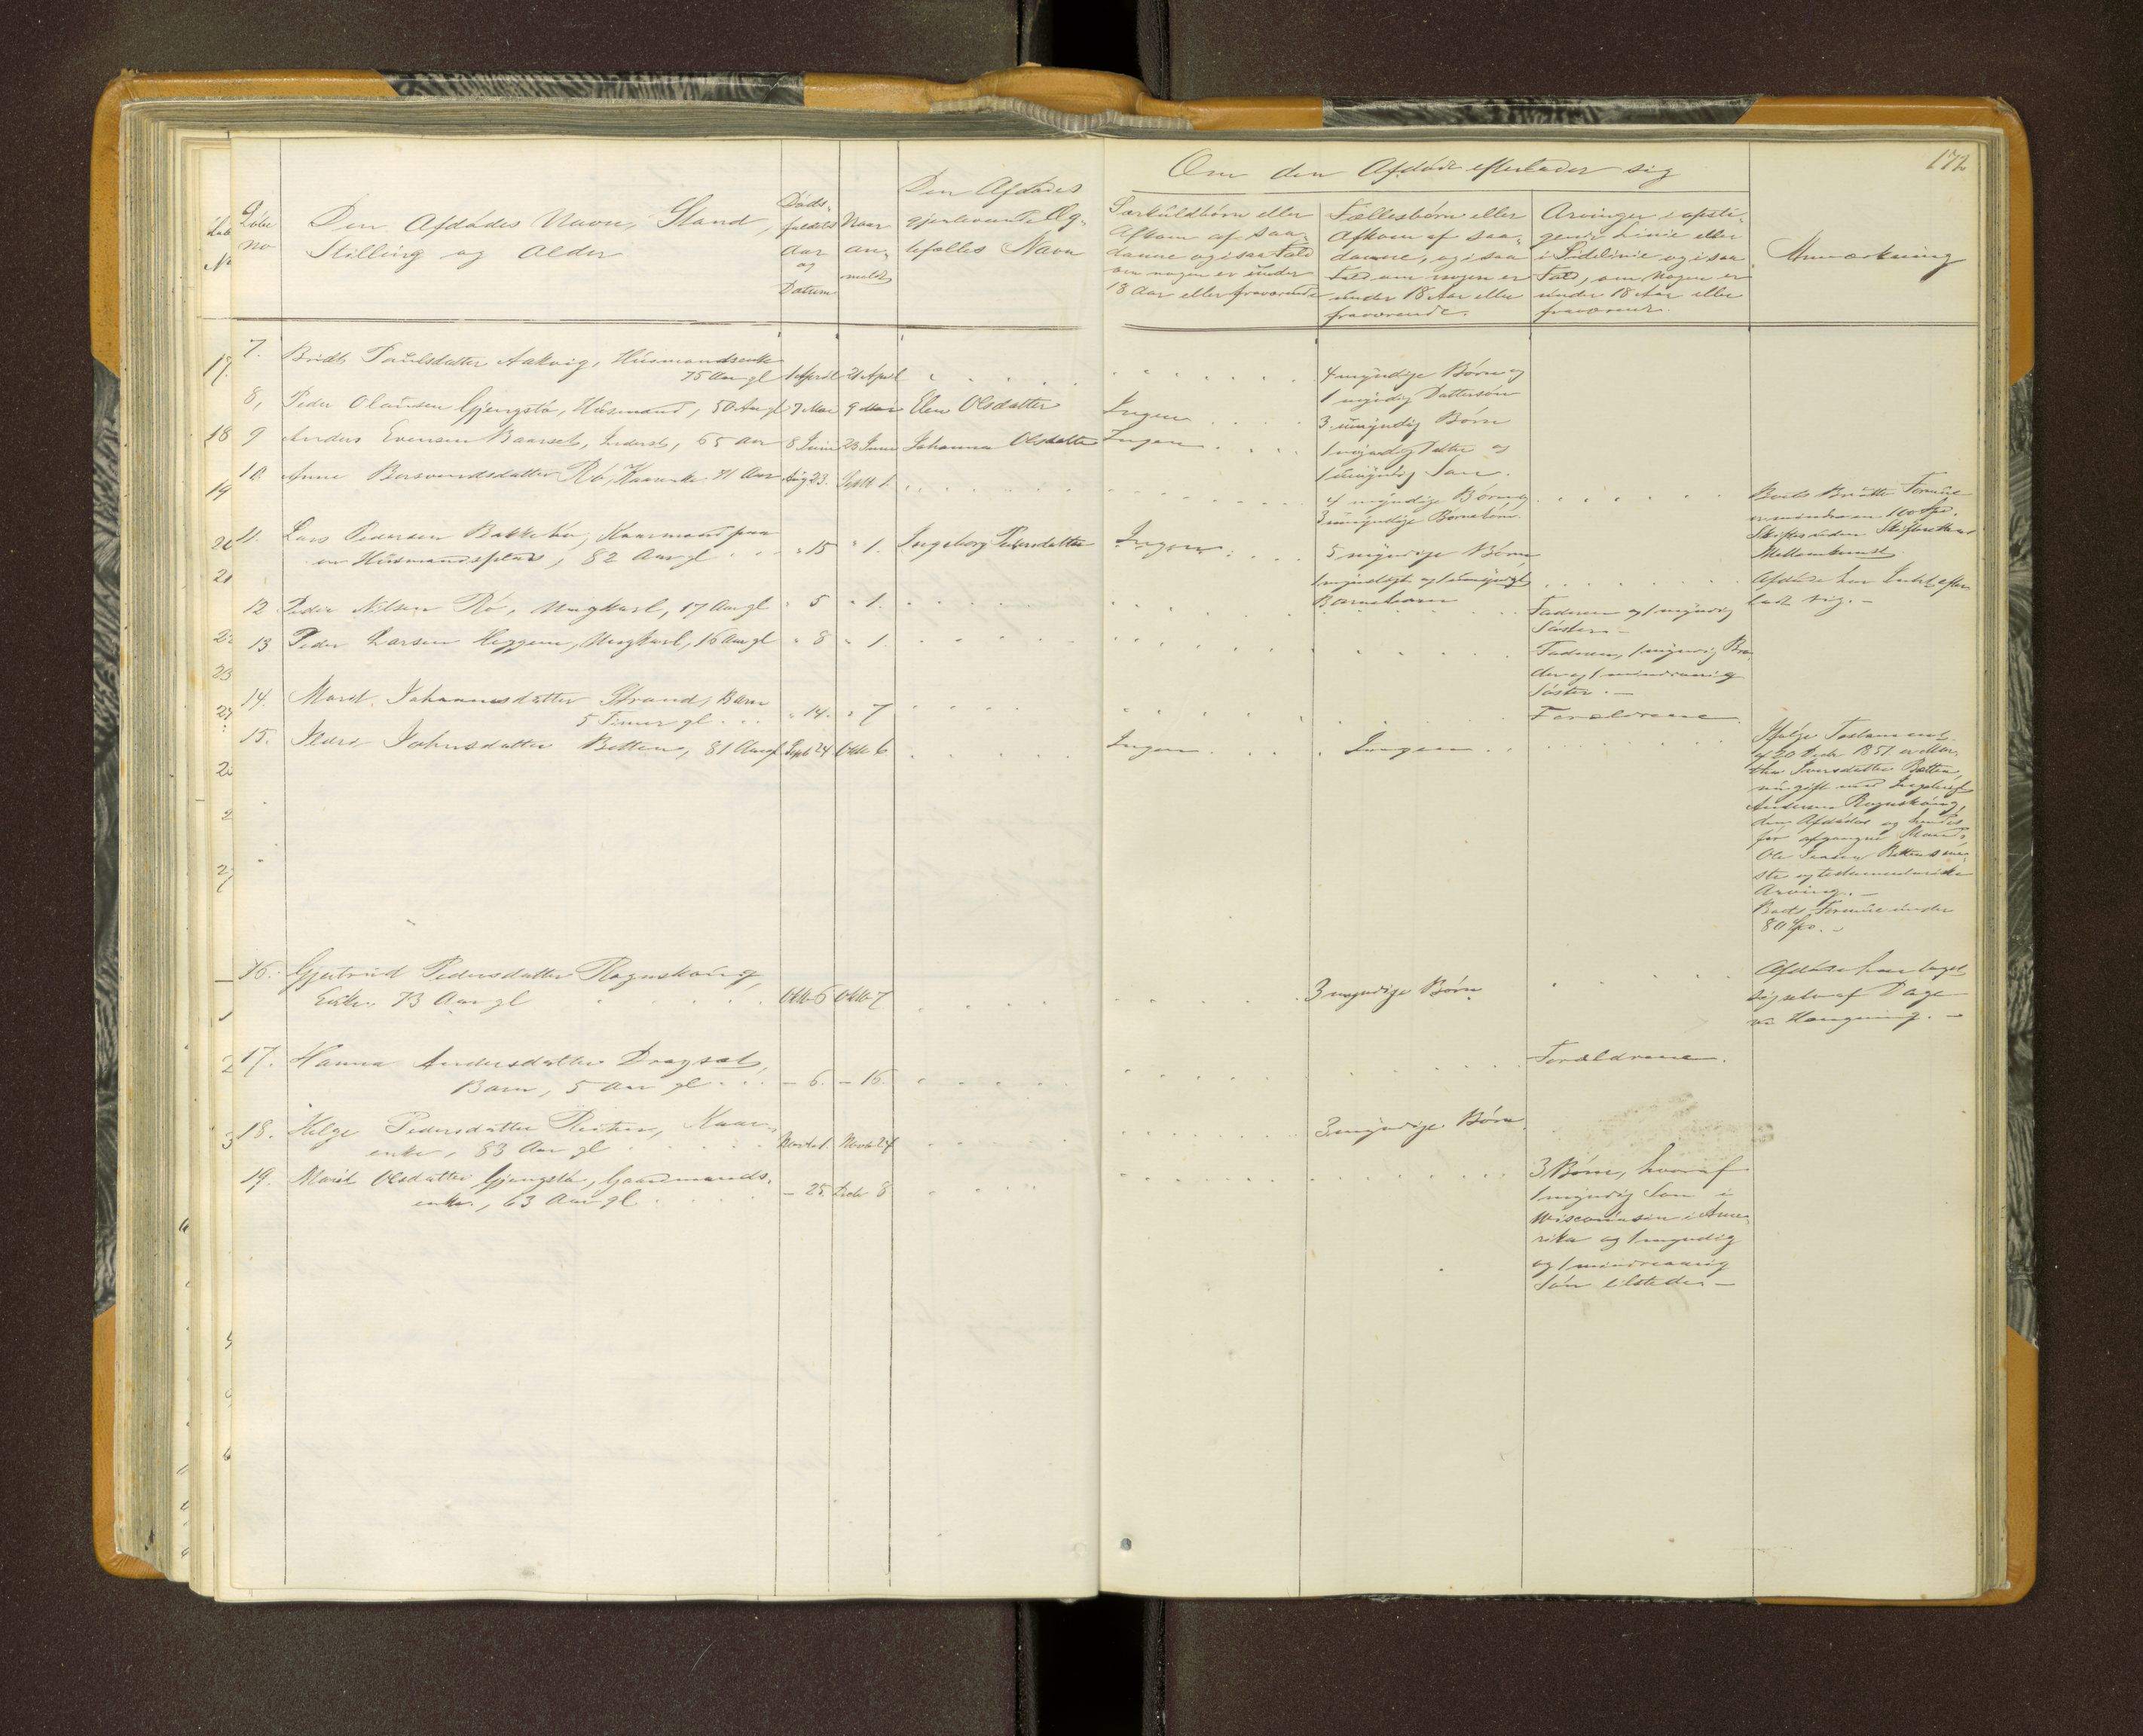 172
Om den Afdøde efterlader sig
Løbe
No
Den Afdødes Navn, Stand,
Stilling og Alder
Døds-
faldets
Aar
og
Datum
Naar
an-
meldt
Den Afdødes
gjenlevende Æg-
tefælles Navn
Særkuldbørn eller
Afkom af saa-
danne og i saa Fald
om nogen er under
18 Aar eller fraværende
Fællesbørn eller
Afkom af saa-
danne, og i saa
Fald om nogen er
under 18 Aar eller
fraværende.
Arvinger i opsti-
gende Linie eller
i Sidelinie og i saa
Fald, om Nogen er
under 18 Aar eller
fraværende.
Anmærkning
7. Bridt Paulsdatter Aakvig, Husmandsenke
75 Aar gl 1 April 21 April
4 myndige Børn og
1 myndig Dattersøn
8, Peder Olausen Gjengstø, Husmand, 50 Aar gl 7 Mai 9 Mai Elen Olsdatter Ingen
3 umyndig Børn
9 Anders Evensen Baarset, Inderst, 65 Aar 8 Juni 23 Juni Johanna Olsdatter Ingen
1 myndig Datter og
1 umyndig Søn.
10. Anne Rø, Kaarenke 71 Aar Aug 23. Septb 1.
4 myndige Børn og
3 umyndige Børnebørn.
Boets Brutto Formue
er mindre en 100 Spd.
Skiftes uden Skifterettens
Mellemkomst.
11. Lars Pedersen Bakkebø, Kaarmand paa
en Husmandsplads, 82 Aar gl " 15 " 1. Ingeborg Pedersdatter Ingen
5 myndige Børn,
1 myndigt og 1 umyndigt
Barnebarn
Afdøde har Intet efter
ladt sig. -
12 Peder Nilsen Rø, Ungkarl, 17 Aar gl " 5 " 1.
Faderen og 1 myndig
Søster. -
13 Peder Larsen Heggem, Ungkarl, 16 Aar gl " 8 " 1.
Faderen, 1 myndig Bro-
der og 1 mindreaarig
Søster. -
14. Marit Johannesdatter Strand, Barn
5 Timer gl " 14. " 7
Forældrene.
15. Johnsdatter Betten, 81 Aar gl Septb 24 Oktb 6 Ingen Ingen
Ifølge Testament
af 20 Decb 1851 er Mar-
the Iversdatter Betten,
nu gift med
Andersen Rognskoug,
den Afdødes og hendes
før afgangne Mands
Ole Betten
ste og testamentariske
Arving. -
Boets Formue under
80 Spd. -
16. Gjertrud Pedersdatter Rognskoug,
Enke, 73 Aar gl Oktb 6 Oktb 7
3 myndige Børn
Afdøde har taget
sig selv af Dage
ved Hængning. -
17. Hanna Andersdatter Dragset,
Barn, 5 Aar gl - 6. - 16.
Forældrene.
18. Helge Pedersdatter Reiten, Kaar-
enke, 83 Aar gl Novb 1. Novb 24
3 myndige Børn.
19. Marit Olsdatter Gjengstø, Gaardmands-
enke, 63 Aar gl - 25. Decb 8
3 Børn, hvoraf
1 myndig Søn i
Wisconsin i Ame-
rika og 1 myndig
og 1 mindreaarig
Søn tilstede. -